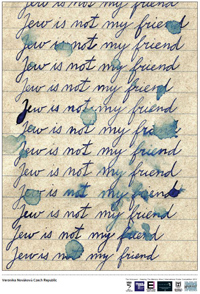 Jew is not my friend
Jew is not my friend
Jew is not my friend
Jew is not my friend
Jew is not my friend
Jew is not my friend
Jew is not my friend
Jew is not my friend
Jew is not my friend
Jew is not my friend
Jew is not my friend
Jew is not my friend
Jew is not my friend
Czech Republic